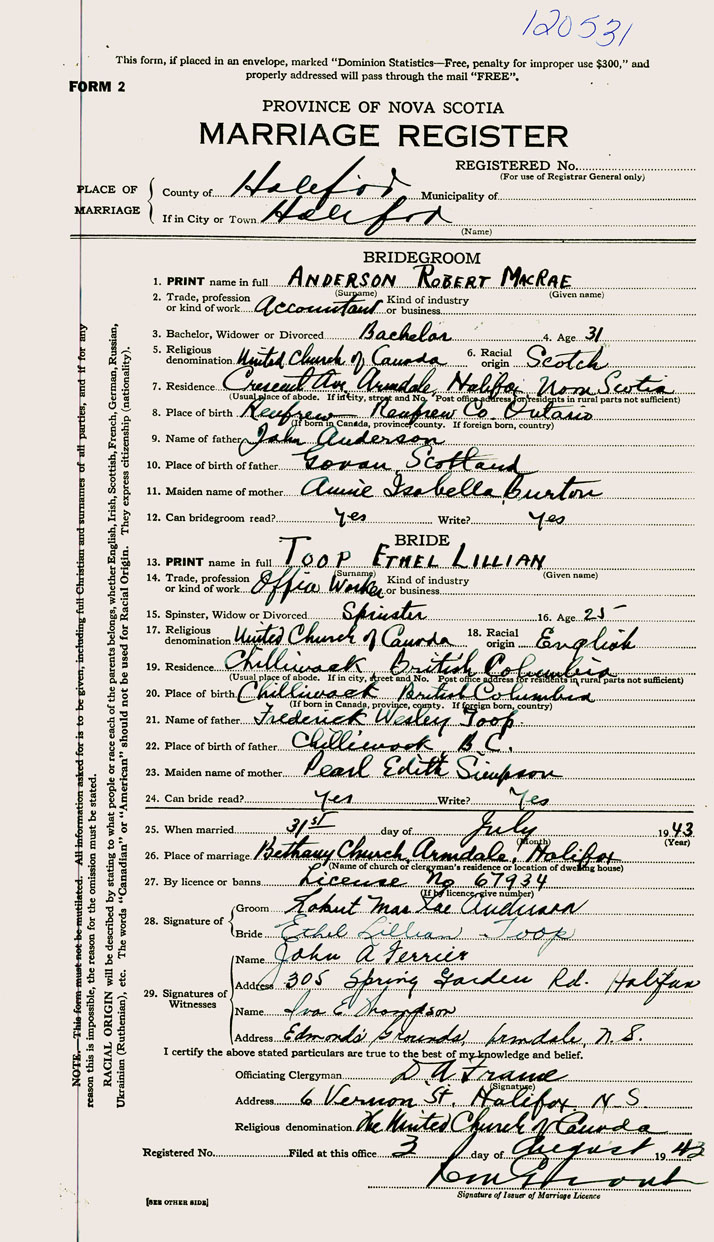 120531
This form, if placed in an envelope, marked "Dominion Statistics—Free, penalty for improper use $300," and
properly addressed will pass through the mail "FREE".
FORM 2
PROVINCE OF NOVA SCOTIA
MARRIAGE REGISTER
REGISTERED No.
(For use of Registrar General only)
PLACE OF MARRIAGE
County of Halifax Municipality of
If in City or Town Halifax
(Name)
BRIDEGROOM
1. PRINT name in full ANDERSON ROBERT MACRAE
(Surname) (Given name)
2. Trade, profession or kind of work Accountant Kind of industry or business
3. Bachelor, Widower or Divorced Bachelor 4. Age 31
5. Religious denomination United Church of Canada 6. Racial origin Scotch
7. Residence Crescent Ave Armdale, Halifax Nova Scotia
(Usual place of abode. If in city, street and No. Post office address for residents in rural parts not sufficient)
8. Place of birth Renfrew Renfrew Co. Ontario
(If born in Canada, province, county. If foreign born, country)
9. Name of father John Anderson
10. Place of birth of father Govan, Scotland
11. Maiden name of mother Annie Isabella Burton
12. Can bridegroom read? Yes Write? Yes
BRIDE
13. PRINT name in full TOOP ETHEL LILLIAN
(Surname) (Given name)
14. Trade, profession or kind of work Office Worker Kind of industry or business
15. Spinster, Widow or Divorced Spinster 16. Age 25
17. Religious denomination United Church of Canada 18. Racial origin English
19. Residence Chilliwack British Columbia
(Usual place of abode. If in city, street and No. Post office address for residents in rural parts not sufficient)
20. Place of birth Chilliwack British Columbia
(If born in Canada, province, county. If foreign born, country)
21. Name of father Frederick Wesley Toop
22. Place of birth of father Chilliwack, B.C.
23. Maiden name of mother Pearl Edith Simpson
24. Can bride read? Yes Write? Yes
25. When married 31st day of July 1943
(Month) (Year)
26. Place of marriage Bethany Church, Armdale, Halifax
(Name of church or clergyman's residence or location of dwelling house)
27. By licence or banns License No 67934
(If by licence, give number)
28. Signature of
Groom Robert MacRae Anderson
Bride Ethel Lillian Toop
29. Signatures of Witnesses
Name John A Ferrier
Address 305 Spring Garden Rd. Halifax
Name Iva E Thompson
Address Edmonds Grounds, Armdale, N.S.
I certify the above stated particulars are true to the best of my knowledge and belief.
Officiating Clergyman D A Frame
(Signature)
Address 6 Vernon St. Halifax N.S.
Religious denomination The United Church of Canada
Registered No. Filed at this office 3 day of August 1943
Signature of Issuer of Marriage Licence
[SEE OTHER SIDE]
NOTE.—This form must not be mutilated. All information asked for is to be given, including full Christian and surnames of all parties, and if for any
reason this is impossible, the reason for the omission must be stated.
RACIAL ORIGIN will be described by stating to what people or race each of the parents belongs, whether English, Irish, Scottish, French, German, Russian,
Ukrainian (Ruthenian), etc. The words "Canadian" or "American" should not be used for Racial Origin. They express citizenship (nationality).